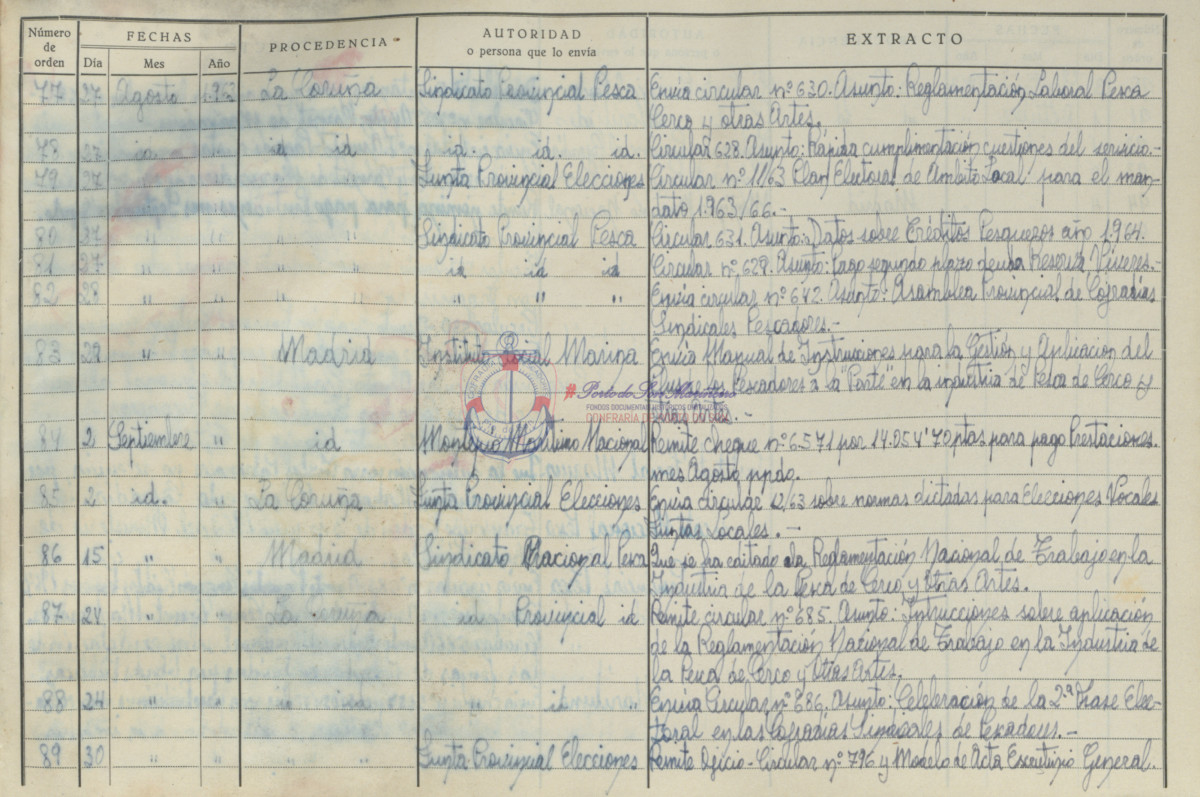 Número de orden FECHAS PROCEDENCIA AUTORIDAD o persona que lo envía EXTRACTO
Día Mes Año
77 27 Agosto 1.963 La Coruña Sindicato Provincial Pesca Envía circular nº 630. Asunto: Reglamentación Laboral Pesca
Cerco y otras Artes.
78 27 id id id id. id. id. Circular 628. Asunto: Rápida cumplimentación cuestiones del servicio.-
79 27 " " " " Junta Provincial Elecciones Circular nº 11/63 Plan Electoral de Ambito Local para el man-
dato 1.963/66.-
80 27 " " " " Sindicato Provincial Pesca Circular 631. Asunto: Datos sobre Créditos Pesqueros año 1.964.
81 27 " " " " id id id Circular nº 629. Asunto: Pago segundo plazo deuda Reserva Viveres.-
82 28 " " " " " " " Envía circular nº 642. Asunto: Asamblea Provincial de Cofradías
Sindicales Pescadores.-
83 28 " " Madrid Instituto Social Marina Envía Manual de Instrucciones para la Gestión y Aplicacion del
Pescadores a la "Parte" en la industria de Pesca de Cerco y
otras Artes.-
#PortodoSonMariñeiro
FONDOS DOCUMENTAIS
CONFRARÍA DE
84 2 Septiembre " id Montepio Marítimo Nacional Remite cheque nº 6571 por 14.054'70 ptas para pago Prestaciones
mes Agosto ppdo.
85 2 id. " La Coruña Junta Provincial Elecciones Envia circular 12/63 sobre normas dictadas para Elecciones Vocales
Juntas Locales.-
86 15 " " Madrid Sindicato Nacional Pesca Que se ha editado la Reglamentación Nacional de Trabajo en la
Industria de la Pesca de Cerco y Otras Artes.
87 24 " " La Coruña id Provincial id Remite circular nº 685. Asunto: Intrucciones sobre aplicación
de la Reglamentación Nacional de Trabajo en la Industria de
la Pesca de Cerco y Otras Artes.
88 24 " " " " " id " Envía Circular nº 686. Asunto: Celebración de la 2ª Fase Elec-
toral en las Cofradías Sindicales de Pescadores.-
89 30 " " " " Junta Provincial Elecciones Remite Oficio-Circular nº 796 y Modelo de Acta Escrutinio General.